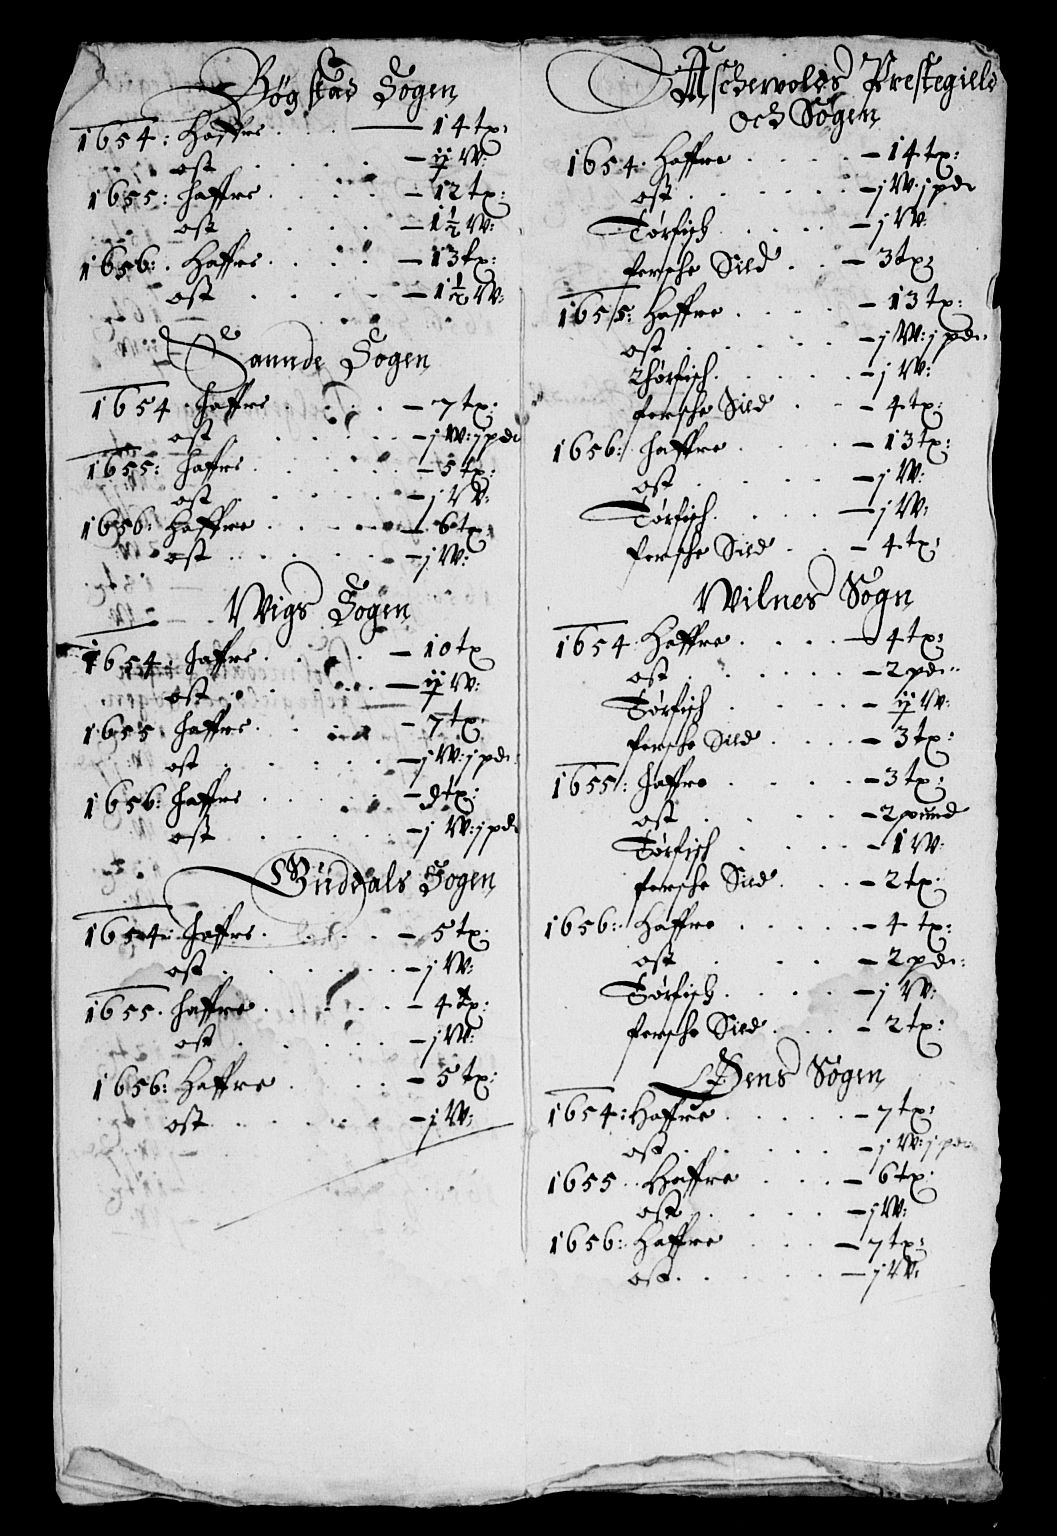 Bøgstad Sogen
1654: Haffre . . . — 14 tx:
ost . . . . — ij W:
1655: haffre . . . — 12 tx:
ost . . . . — 1½ W:
1656: Haffre . . . — 13 tx:
ost . . . . — 1½ W:
Sannde Sogen
1654 haffre . . . — 7 tx:
ost . . . . — j W: j pd:
1655: haffre . . . — 5 tx:
ost . . . . — j W:
1656: Haffre . . . — 6 tx:
ost . . . . — j W:
Wigs Sogen
1654: haffre . . . — 10 tx
ost . . . . — ij W:
1655 haffre . . . — 7 tx:
ost . . . . — j W: j pd:
1656: haffre . . . — 9 tx:
ost . . . . — j W: j pd:
Güdals Sogen
1654: haffre . . . — 5 tx:
ost . . . . — j W:
1655. haffre . . . — 4 tx:
ost . . . . — j W:
1656: Haffre . . . — 5 tx:
ost . . . . — j W:
Aschevolds Prestegield
och Sogen
1654. Haffre . . . — 14 tx:
ost . . . . — j W. j pd:
Tørfisch . . . — j W.
fersche Sild . . — 3 tx:
1655: Haffre . . . — 13 tx:
ost . . . . — j W: j pd:
Thørfisch . . . — j W:
fersche Sild . . — 4 tx:
1656: haffre . . . — 13 tx:
ost . . . . — j W:
Tørfisch . . . — j W:
fersche Sild . . — 4 tx:
Wilnes Sogn
1654 Haffre . . . — 4 tx:
ost . . . . — 2 pd:
Tørfisch . . . — ij W:
fersche Sild . . — 3 tx:
1655: haffre . . . — 3 tx:
ost . . . . — 2 pund
Tørfisch . . . — 1 W:
fersche Sild . . — 2 tx:
1656: Haffre . . . — 4 tx:
ost . . . . — 2 pd:
Tørfisch . . . — j W:
fersche Sild . . — 2 tx:
Øens Sogen
1654: Haffre . . . — 7 tx:
ost . . . . — j W: j pd:
1655 Haffre . . . — 6 tx:
ost . . . . — j W:
1656: Haffre . . . — 7 tx:
ost . . . . — j W: